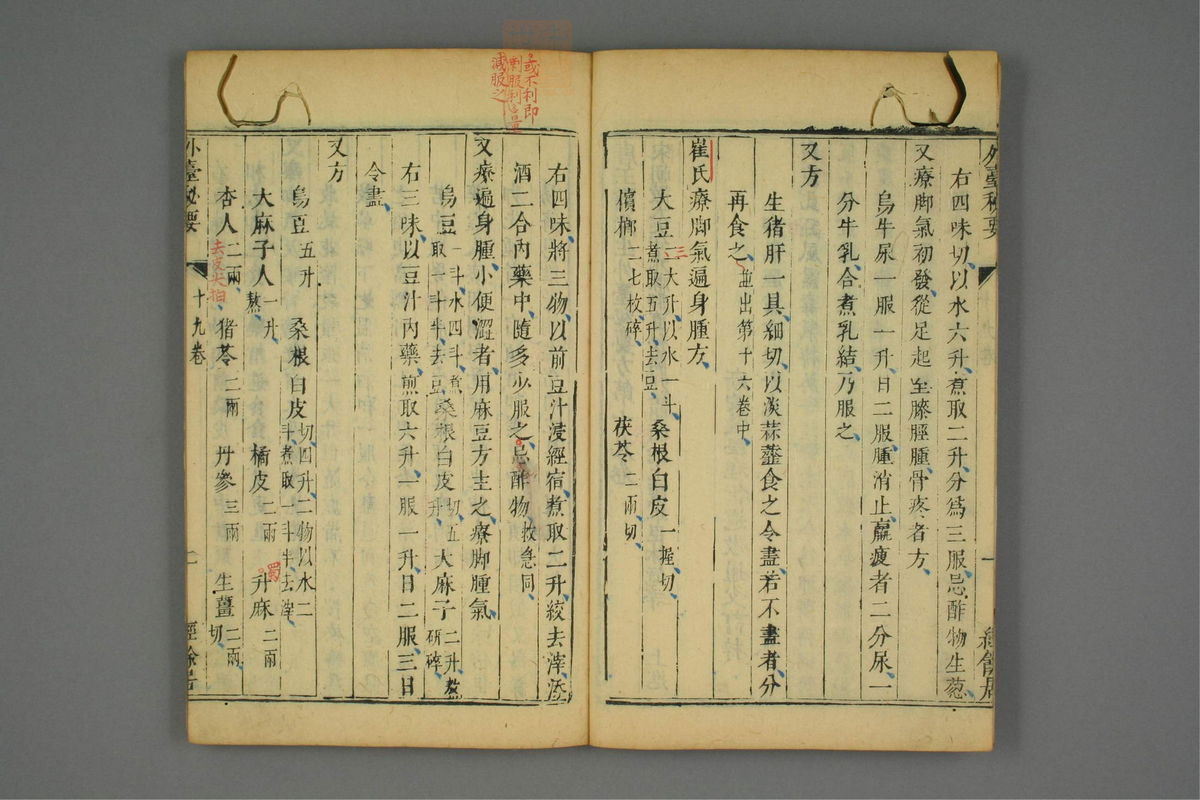 外臺秘要
一
經餘居
右四味切以水六升煮取二升分爲三服忌酢物生葱
又療脚氣初發從足起至膝脛腫骨疼者方
烏牛尿一服一升日二服腫消止羸瘦者二分尿一
分牛乳合煮乳結乃服之
又方
生猪肝一具細切以淡蒜虀食之令盡若不盡者分
再食之並出第十六卷中
崔氏療脚氣遍身腫方
大豆二大升以水一斗煮取五升去豆 桑根白皮一握切
三
檳榔二七枚碎 茯苓二兩切
或不利即
減服之
右四味將三物以前豆汁浸經宿煮取二升絞去滓添
酒二合內藥中隨多少服之忌酢物救急同
又療遍身腫小便澀者用麻豆方主之療脚腫氣
烏豆一斗水四斗煮取一斗半去豆 桑根白皮切五升 大麻子二升熬研碎
右三味以豆汁內藥煎取六升一服一升日二服三日
令盡
又方
烏豆五升 桑根白皮切四升二物以水二斗煮取一斗半去滓
大麻子人一升熬 橘皮二兩 升麻二兩
蜀
杏人二兩 猪苓二兩 丹參三兩 生薑二兩切
去皮尖
外臺秘要
十九卷
二
經餘居